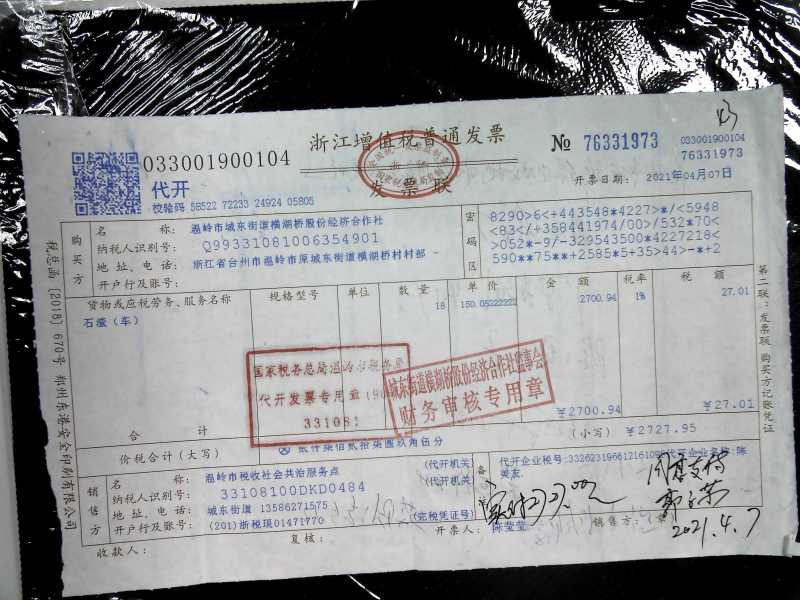 43
033001900104
浙江增值税普通发票
№ 76331973
033001900104
76331973
代开
发票联
开票日期： 2021年04月07日
校验码 58522 72233 24924 05805
税总函〔2018〕670号 郑州东港安全印刷有限公司
购买方
名称： 温岭市城东街道横湖桥股份经济合作社
纳税人识别号： Q99331081006354901
地址、电话： 浙江省台州市温岭市原城东街道横湖桥村村部 -
开户行及账号：
密码区
8290>6<+443548*4227>*/<5948
<83</+358441974/00>/532*70<
>052*-9/-329543500*4227218<
590**75**+2585*5+35>44>-*+2
货物或应税劳务、服务名称 规格型号 单位 数量 单价 金额 税率 税额
石渣（车） 18 150.05222222 2700.94 1% 27.01
国家税务总局温岭市税务局
代开发票专用章
331081
城东街道横湖桥股份经济合作社监事会
财务审核专用章
合计 ￥2700.94 ￥27.01
价税合计（大写） 贰仟柒佰贰拾柒圆玖角伍分 （小写） ￥2727.95
第二联：发票联 购买方记账凭证
销售方
名称： 温岭市税收社会共治服务点 （代开机关）
纳税人识别号： 33108100DKD0484 （代开机关）
地址、电话： 城东街道 13586271575
开户行及账号： (201)浙税现01471770 （完税凭证号）
备注
代开企业税号:33262319661216109 代开企业名称:陈
美友
同意支付
2021.4.7
收款人：
复核：
开票人： 陈莹莹
销售方：（章）